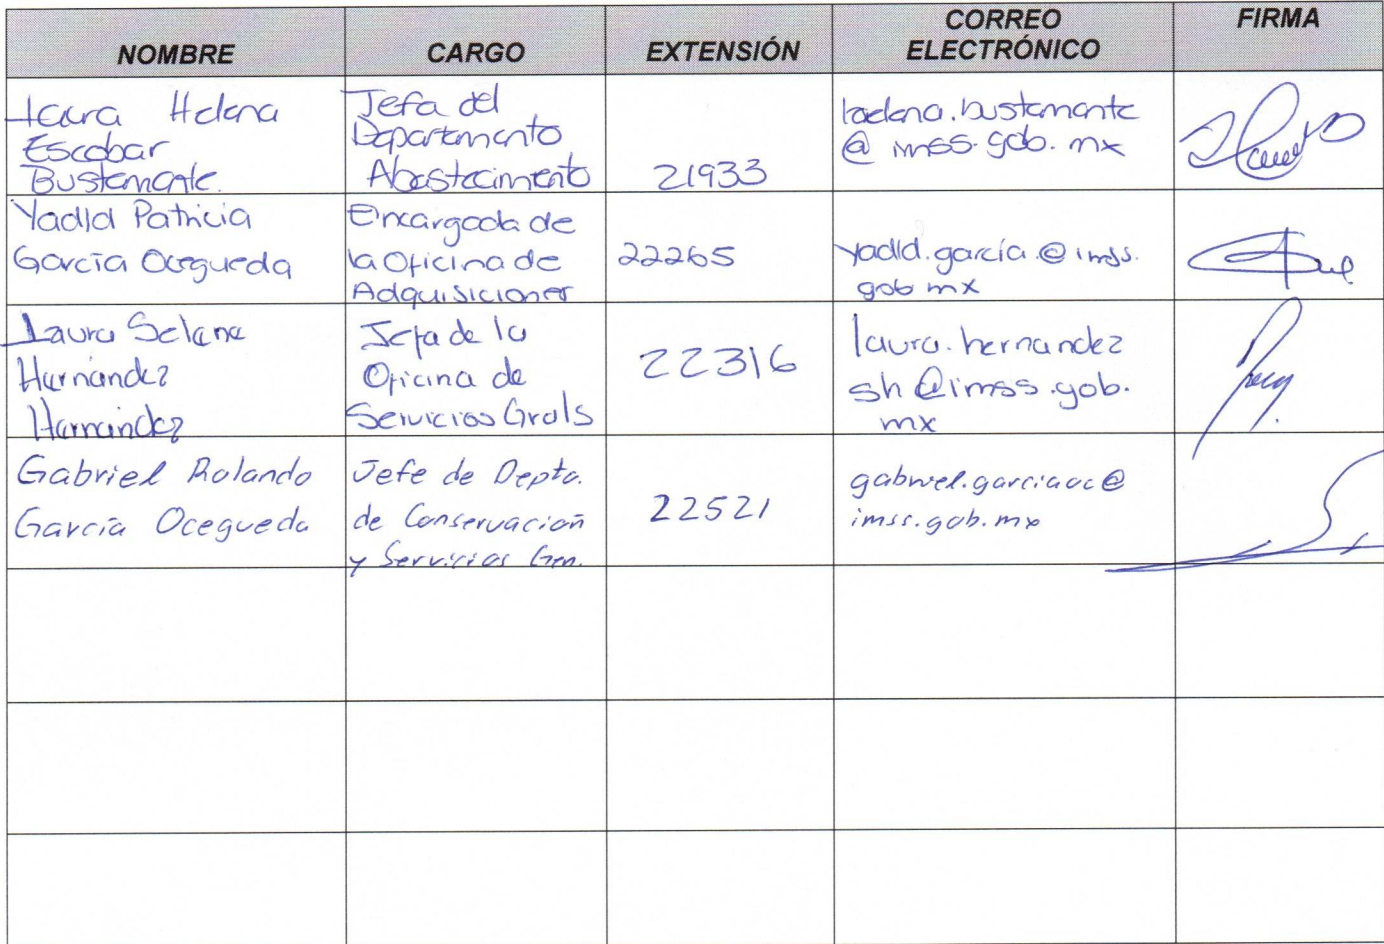 NOMBRE
CARGO
EXTENSIÓN
CORREO
ELECTRÓNICO
FIRMA
Helena
Escobar
Bustamante.
Jefa del
Departamento
Abastecimiento
21933
@ imss.gob.mx
Yadid Patricia
García Ocegueda
Encargada de
la Oficina de
Adquisiciones
22265
yadid.garcía.@imss.
gob mx
Laura Selene
Hernández
Hernández
Jefa de la
Oficina de
Servicios Grals
22316
laura.hernandez
sh@imss.gob.
mx
Gabriel Rolando
García Ocegueda
Jefe de Depto.
de Conservación
y Servicios Gen.
22521
gabriel.garciaoc@
imss.gob.mx